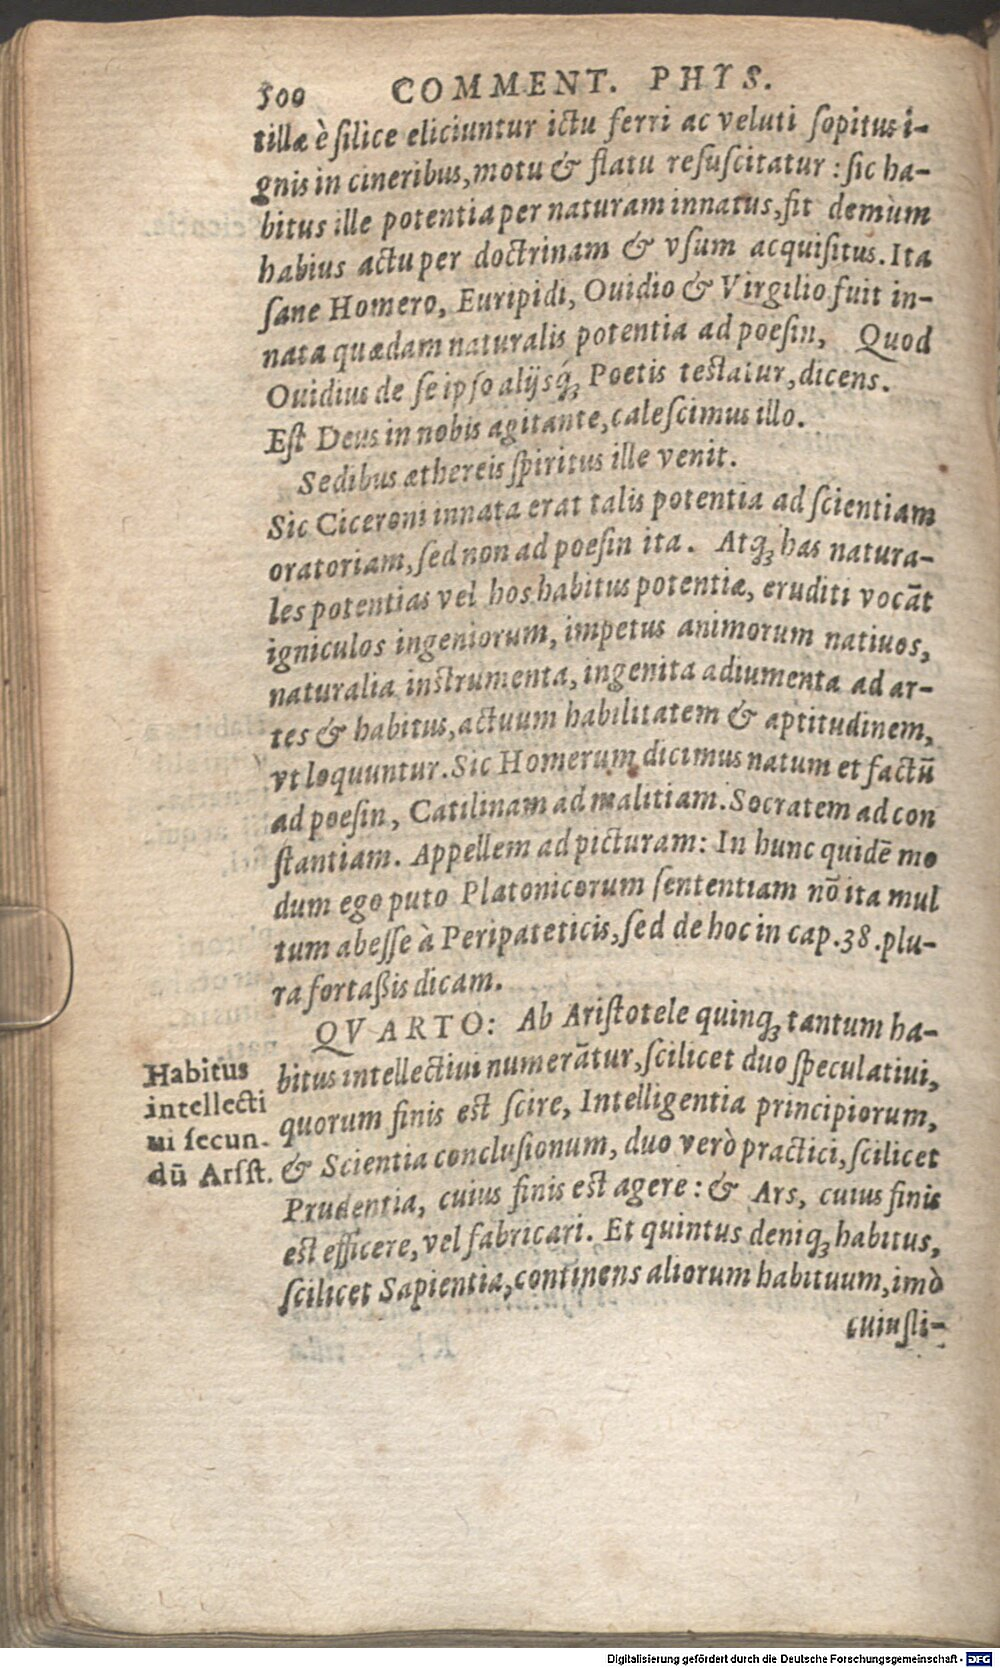 500 COMMENT. PHYS.
tillæ è ſilice eliciuntur ictu ferri ac veluti ſopitus i-
gnis in cineribus, motu & flatu reſuſcitatur : ſic ha-
bitus ille potentia per naturam innatus, fit demùm
habius actu per doctrinam & vſum acquiſitus. Ita
ſane Homero, Euripidi, Ouidio & Virgilio fuit in-
nata quædam naturalis potentia ad poeſin, Quod
Ouidius de ſe ipſo alijsq́; Poetis teſtatur, dicens.
Eſt Deus in nobis agitante, caleſcimus illo.
Sedibus æthereis ſpiritus ille venit.
Sic Ciceroni innata erat talis potentia ad ſcientiam
oratoriam, ſed non ad poeſin ita. Atq; has natura-
les potentias vel hos habitus potentiæ, eruditi vocāt
igniculos ingeniorum, impetus animorum natiuos,
naturalia inſtrumenta, ingenita adiumenta ad ar-
tes & habitus, actuum habilitatem & aptitudinem,
vt loquuntur. Sic Homerum dicimus natum et factū
ad poeſin, Catilinam ad malitiam. Socratem ad con
ſtantiam. Appellem ad picturam: In hunc quidē mo
dum ego puto Platonicorum ſententiam nō ita mul
tum abeſſe à Peripateticis, ſed de hoc in cap. 38. plu-
ra fortaßis dicam.
QVARTO: Ab Ariſtotele quinq; tantum ha-
bitus intellectiui numerātur, ſcilicet duo ſpeculatiui,
quorum finis eſt ſcire, Intelligentia principiorum,
& Scientia concluſionum, duo verò practici, ſcilicet
Prudentia, cuius finis eſt agere : & Ars, cuius finis
eſt efficere, vel fabricari. Et quintus deniq; habitus,
ſcilicet Sapientia, continens aliorum habituum, imò
cuiuſli-
Habitus
intellecti
ui ſecun-
dū Arſſt.
Digitalisierung gefördert durch die Deutsche Forschungsgemeinschaft - DFG